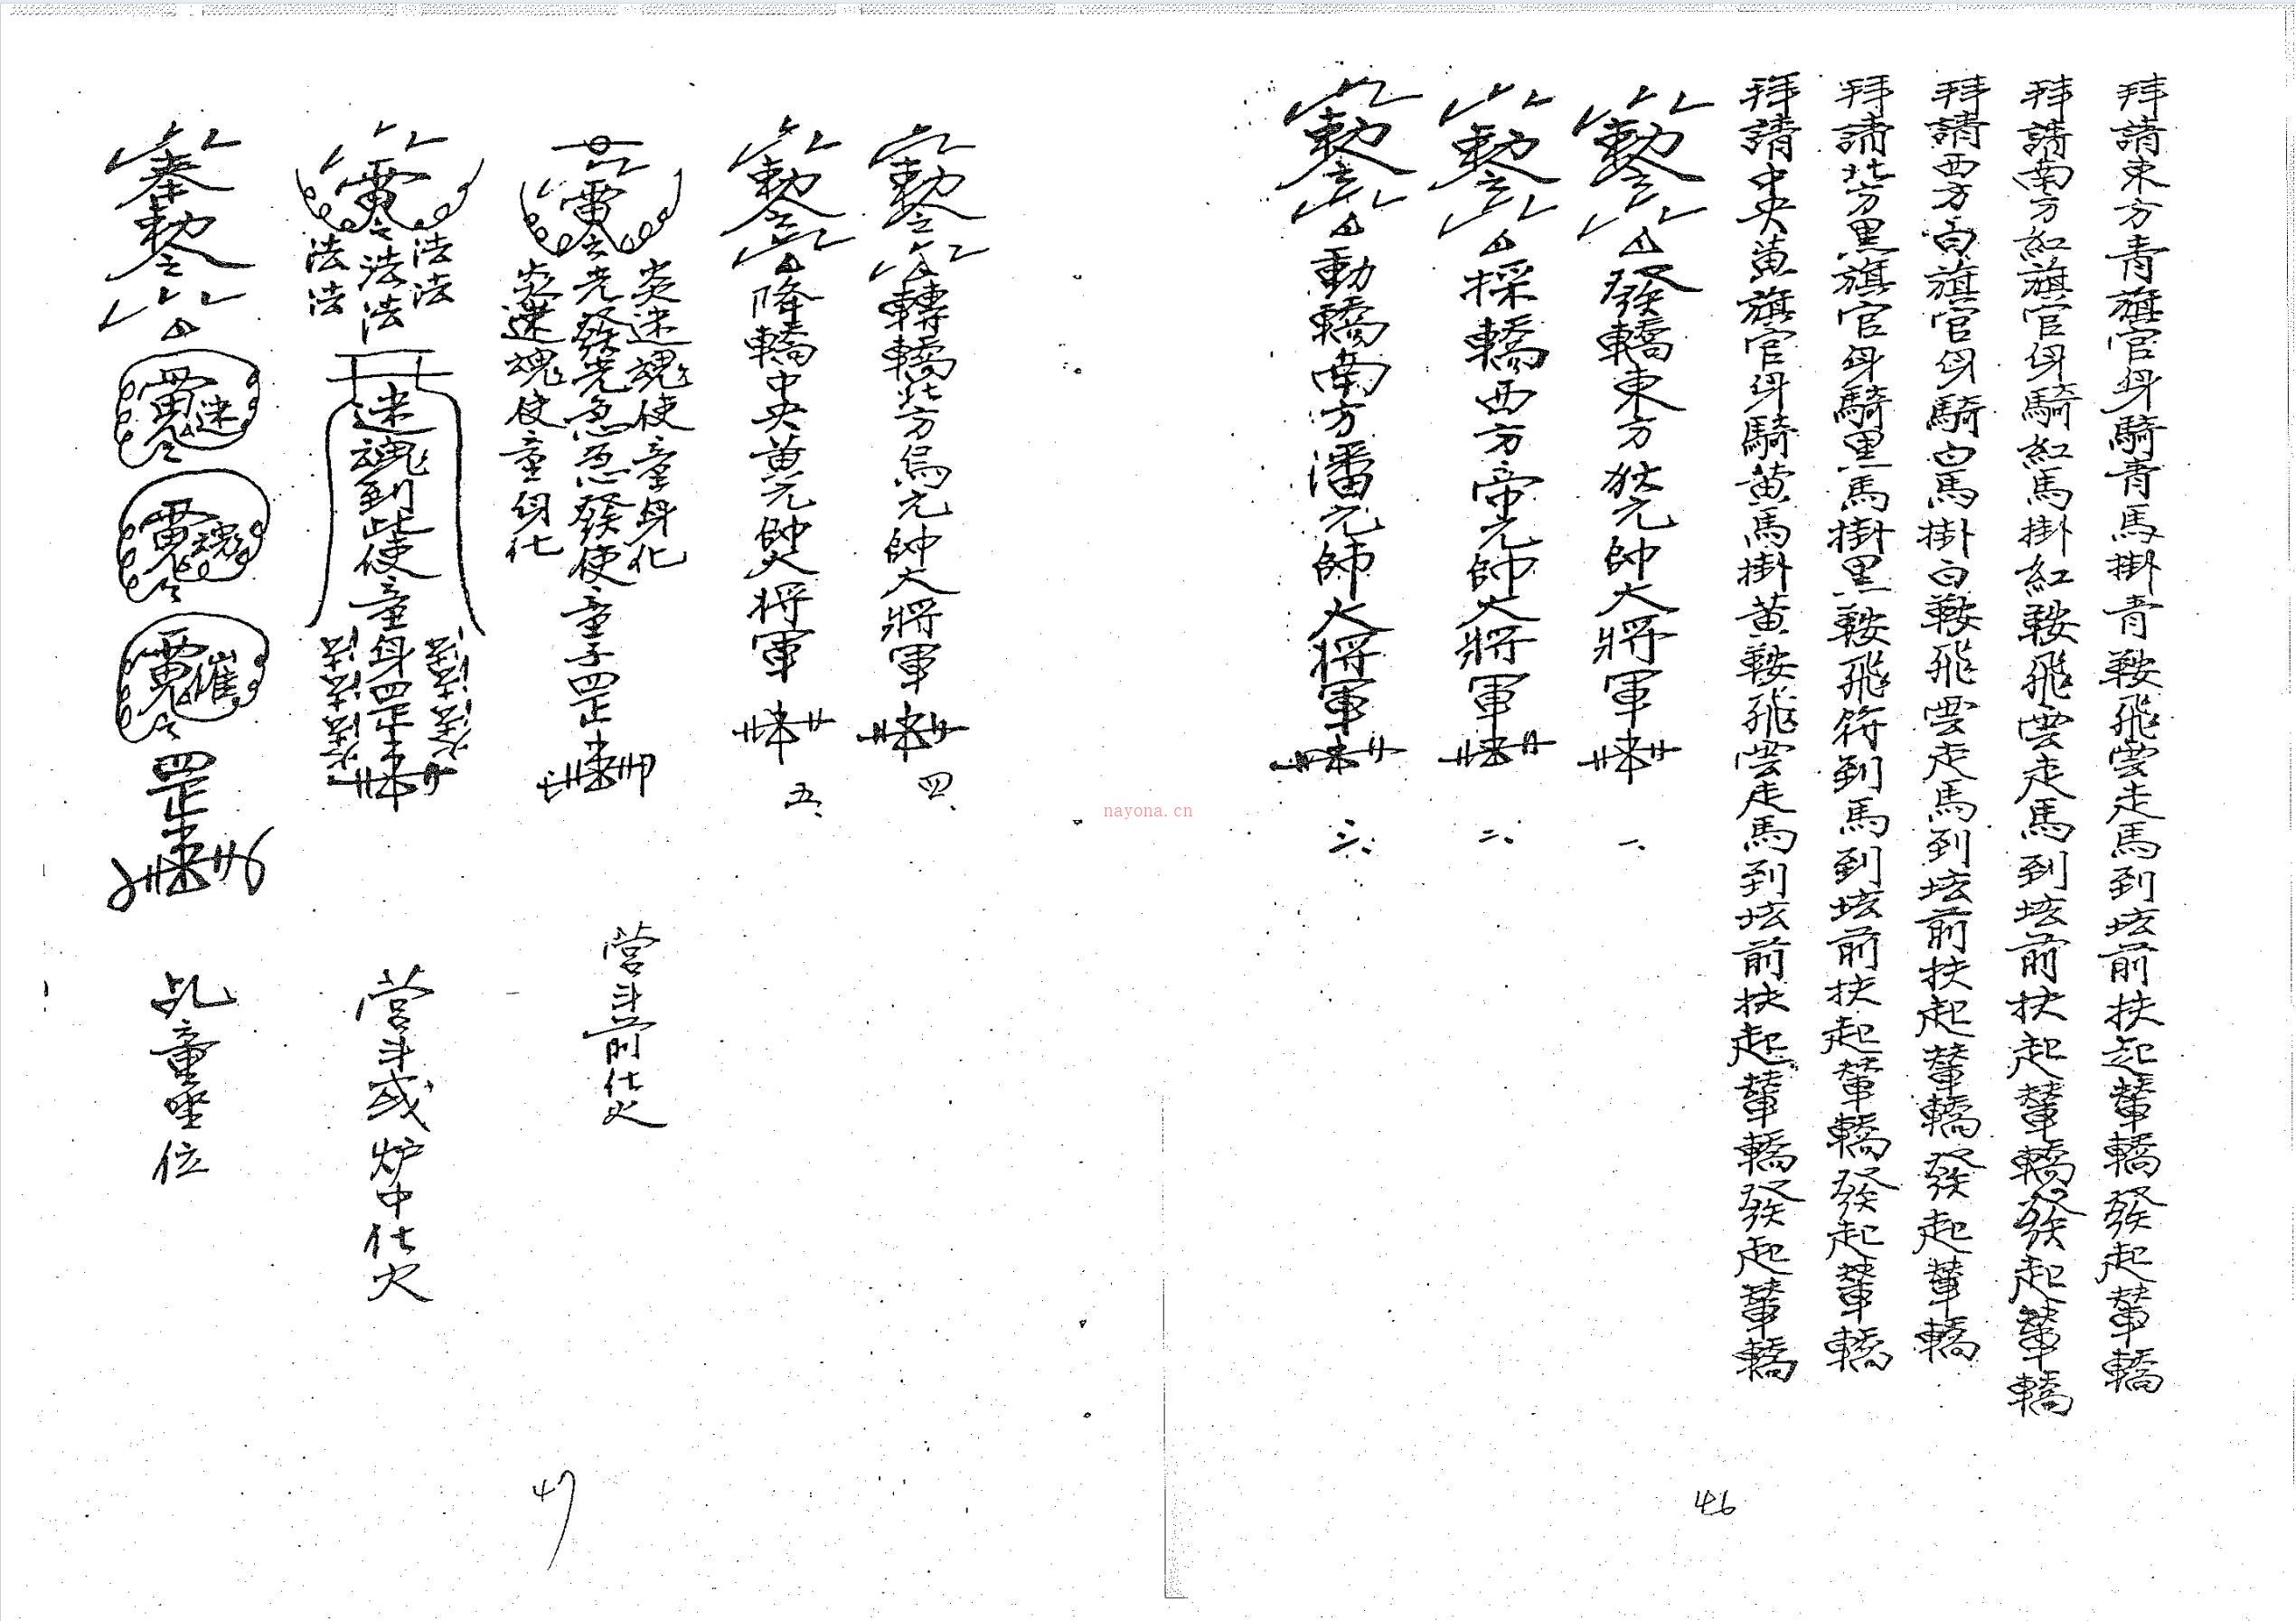 拜請東方青旗官身騎青馬掛青鞍飛雲走馬到坛前扶起輦轎發起輦轎
拜請南方紅旗官身騎紅馬掛紅鞍飛雲走馬到坛前扶起輦轎發起輦轎
拜請西方白旗官身騎白馬掛白鞍飛雲走馬到坛前扶起輦轎發起輦轎
拜請北方黑旗官身騎黑馬掛黑鞍飛符到馬到坛前扶起輦轎發起輦轎
拜請中央黃旗官身騎黃馬掛黃鞍飛雲走馬到坛前扶起輦轎發起輦轎
勅令發轎東方狄元帥大將軍 一、
勅令採轎西方帝元帥大將軍 二、
勅令動轎南方潘元帥大將軍 三、
46
勅令轉轎北方烏元帥大將軍 四、
勅令降轎中央黃元帥大將軍 五、
炎迷魂使童身化
光發光急急發使童子罡
炎迷魂使童身化
营斗前化火
法法
法法
法法
迷魂到此使童身罡
营斗或炉中化火
奉勅令
迷
魂
催
罡
乩童坐位
47
nayona.cn